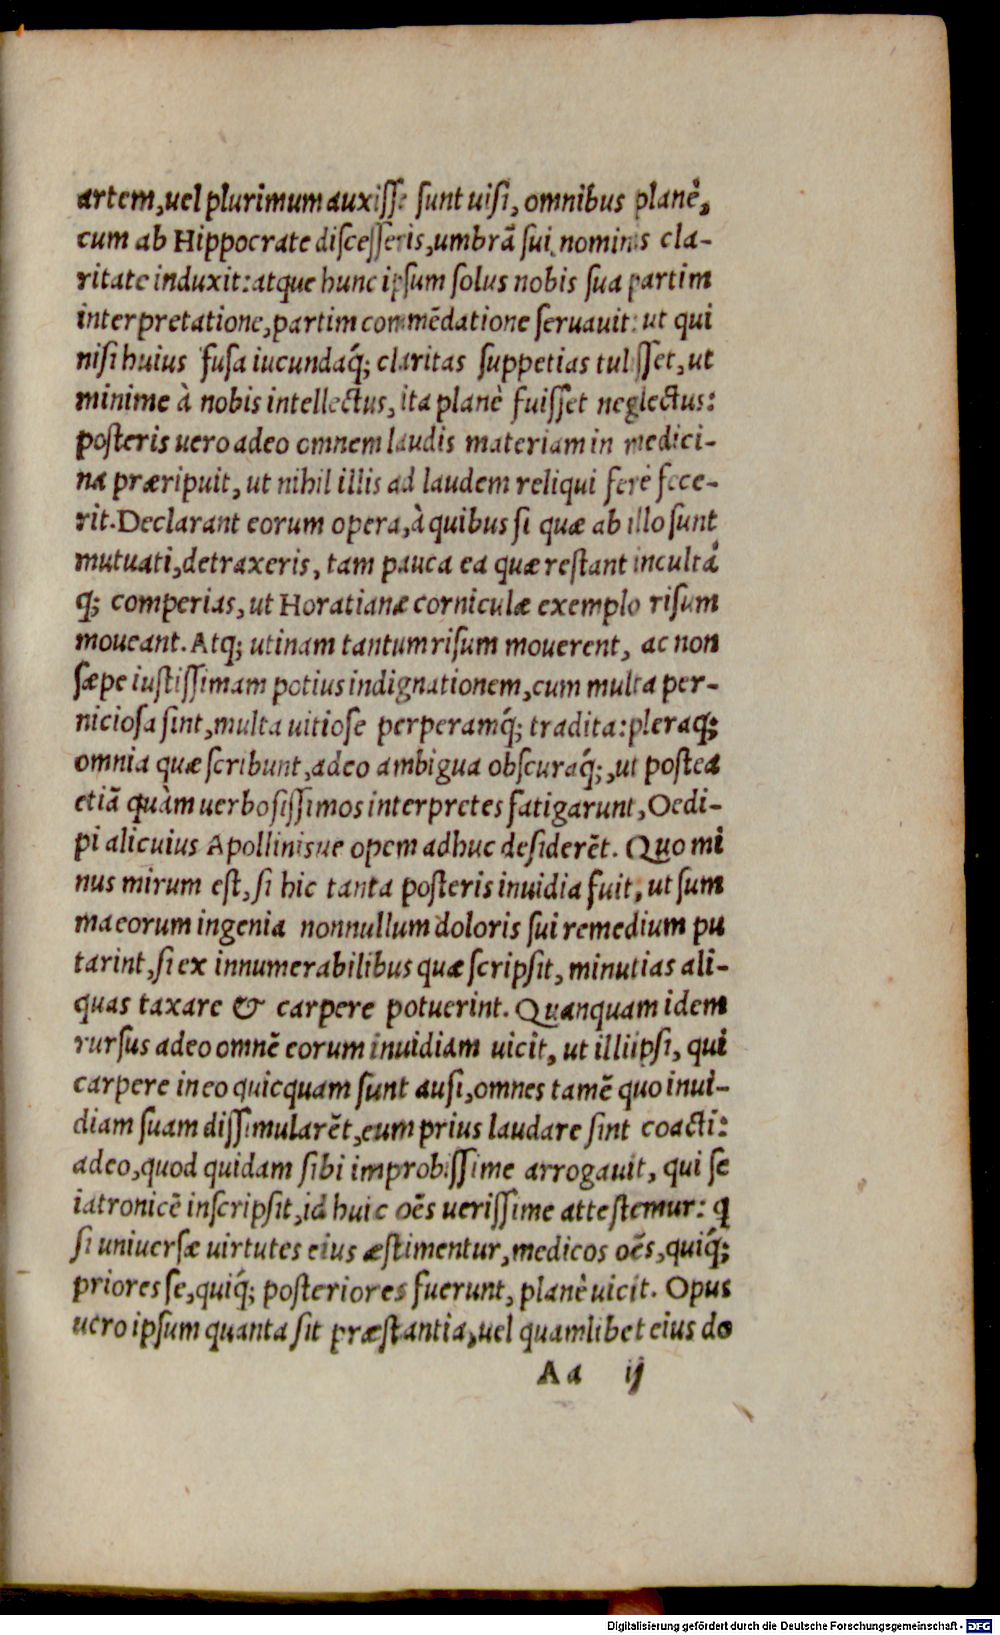 artem,uel plurimum auxiſſe ſunt uiſi, omnibus planè,
cum ab Hippocrate diſceſſeris,umbrā ſui nominis cla-
ritate induxit:atque hunc ipſum ſolus nobis ſua partim
interpretatione,partim commēdatione ſeruauit: ut qui
niſi huius fuſa iucundaq́; claritas ſuppetias tuliſſet, ut
minime à nobis intellectus, ita planè fuiſſet neglectus:
poſteris uero adeo omnem laudis materiam in medici-
na præripuit, ut nihil illis ad laudem reliqui ferè fece-
rit.Declarant eorum opera,à quibus ſi quæ ab illo ſunt
mutuati,detraxeris, tam pauca ea quæ reſtant incultá
q; comperias, ut Horatianæ corniculæ exemplo riſum
moueant. Atq; utinam tantum riſum mouerent, ac non
ſæpe iuſtiſſimam potius indignationem,cum multa per-
nicioſa ſint,multa uitioſe perperamq́; tradita:pleraq;
omnia quæ ſcribunt,adeo ambigua obſcuraq́;,ut poſtea
etiā quàm uerboſiſſimos interpretes fatigarunt, Oedi-
pi alicuius Apollinisue opem adhuc deſiderēt. Quo mi
nus mirum eſt, ſi hic tanta poſteris inuidia fuit, ut ſum
ma eorum ingenia nonnullum doloris ſui remedium pu
tarint,ſi ex innumerabilibus quæ ſcripſit, minutias ali-
quas taxare & carpere potuerint. Quanquam idem
rurſus adeo omnē eorum inuidiam uicit, ut illi ipſi, qui
carpere in eo quicquam ſunt auſi,omnes tamē quo inui-
diam ſuam diſſimularēt,eum prius laudare ſint coacti:
adeo,quod quidam ſibi improbiſſime arrogauit, qui ſe
iatronicē inſcripſit,id huic oēs ueriſſime atteſtemur: q
ſi uniuerſæ uirtutes eius æſtimentur,medicos oēs,quiq́;
priores ſe,quiq́; poſteriores fuerunt, planè uicit. Opus
uero ipſum quanta ſit præſtantia,uel quamlibet eius do
Aa ij
Digitalisierung gefördert durch die Deutsche Forschungsgemeinschaft - DFG